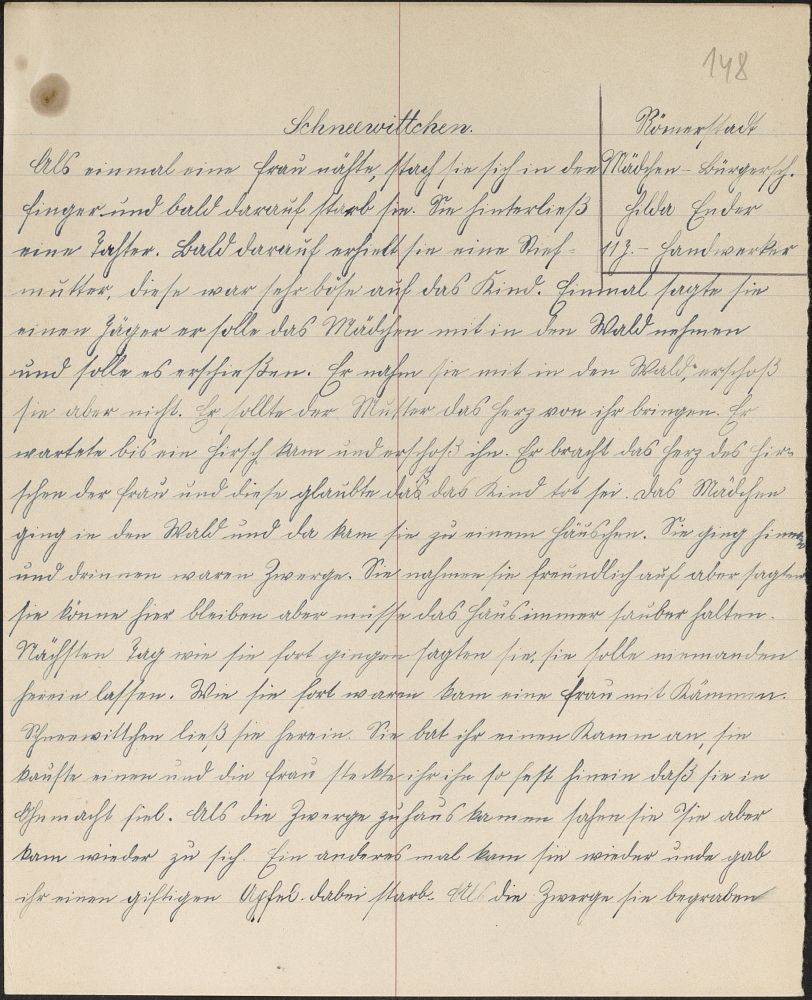 148
Schneewittchen.
Römerstadt
Mädchen-Bürgersch.
Hilda Ender
11J.- Handwerker
Als einmal eine Frau nähte, stach sie sich in den
Finger und bald darauf starb sie. Sie hinterließ
eine Tahter. Bald darauf erhielt sie eine Stief-
mutter, diese war sehr böse auf das Kind. Einmal sagte sie
einen Jäger er solle das Mädchen mit in den Wald nehmen
und solle es erschießen. Er nahm sie mit in den Wald, erschoß
sie aber nicht. Er sollte der Mutter das Herz von ihr bringen. Er
wartete bis ein Hirsch kam und erschoß ihn. Er bracht das Herz des Hir-
schen der Frau und diese glaubte das das Kind tot sei. Das Mädchen
ging in den Wald und da kam sie zu einem Häuschen. Sie ging hinein
und drinnen waren Zwerge. Sie nahmen sie freundlich auf aber sagten
sie könne hier bleiben aber müsse das Haus immer sauber halten.
Nächsten Tag wie sie fort gingen sagten sie, sie solle niemanden
herein lassen. Wie sie fort waren kam eine Frau mit Kämmen.
Schneewittchen ließ sie herein. Sie bat ihr einen Kamm an, sie
kaufte einen und die Frau steckte ihr ihn so fest hinein daß sie in
Ohnmacht fiel. Als die Zwerge zuhaus kamen sahen sie sie aber
kam wieder zu sich. Ein anderes mal kam sie wieder unde gab
ihr einen giftigen Apfel. dabei starb. Als die Zwerge sie begraben